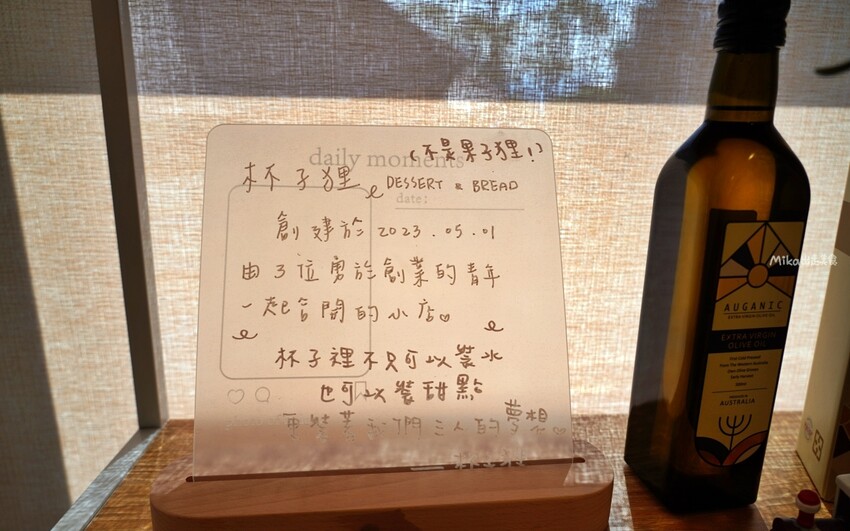 (不是果子狸!)
daily moments
杯子狸 DESSERT & BREAD
date:
創建於 2023.05.01
由3位勇於創業的青年
一起合開的小店
杯子裡不只可以裝水
也可以裝甜點
更裝著我們三人的夢想
Mika
AUGANIC
EXTRA VIRGIN OLIVE OIL
EXTRA VIRGIN
OLIVE OIL
AUSTRALIA